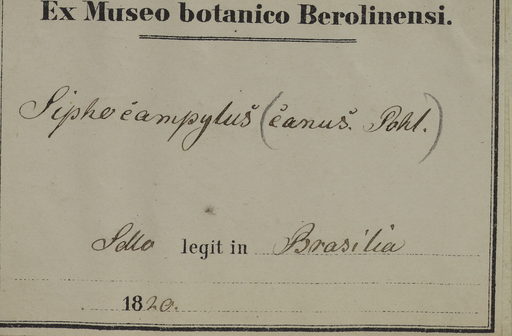 Ex Museo botanico Berolinensi.
Siphocampylus (canus. Pohl.)
Sello legit in Brasilia
1820.